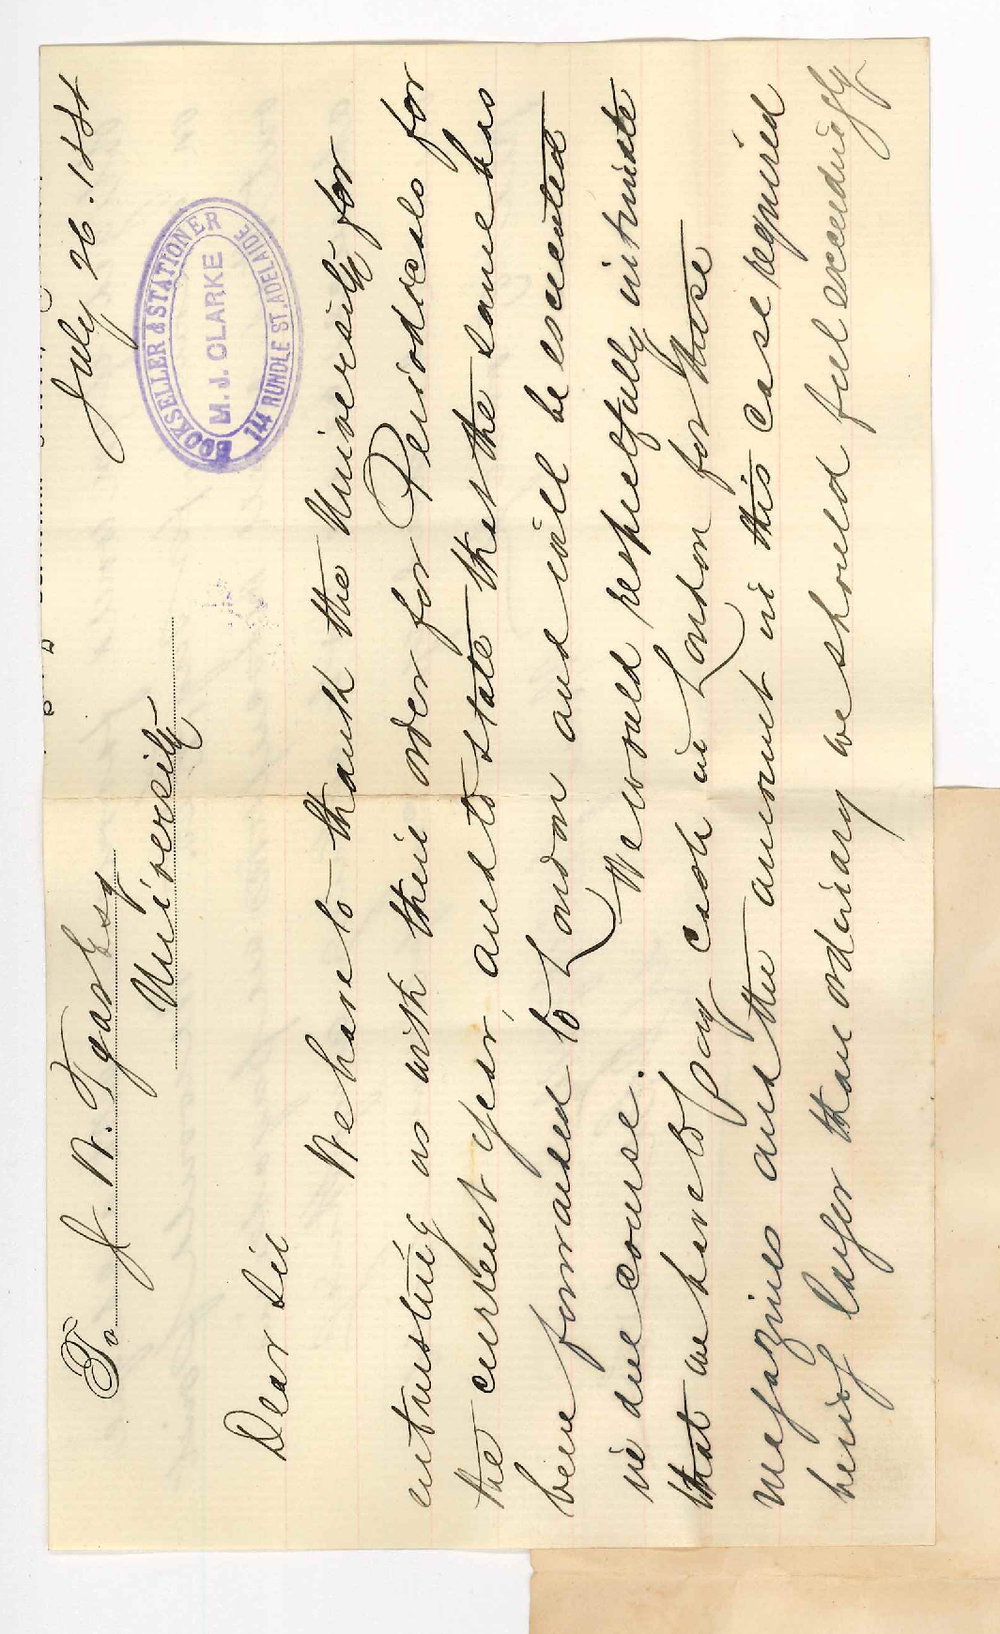 July 26. 1884
BOOKSELLER & STATIONER
M. J. CLARKE
144 RUNDLE ST. ADELAIDE
To J. W. Tyas Esq
University
Dear Sir
We have to thank the University for
entrusting us with their order for Periodicals for
the current year, and to state that the same has
been forwarded to London and will be executed
in due course. We would respectfully intimate
that we have to pay cash in London for these
magazines and the amount in this case required
being larger than ordinary we should feel exceedingly